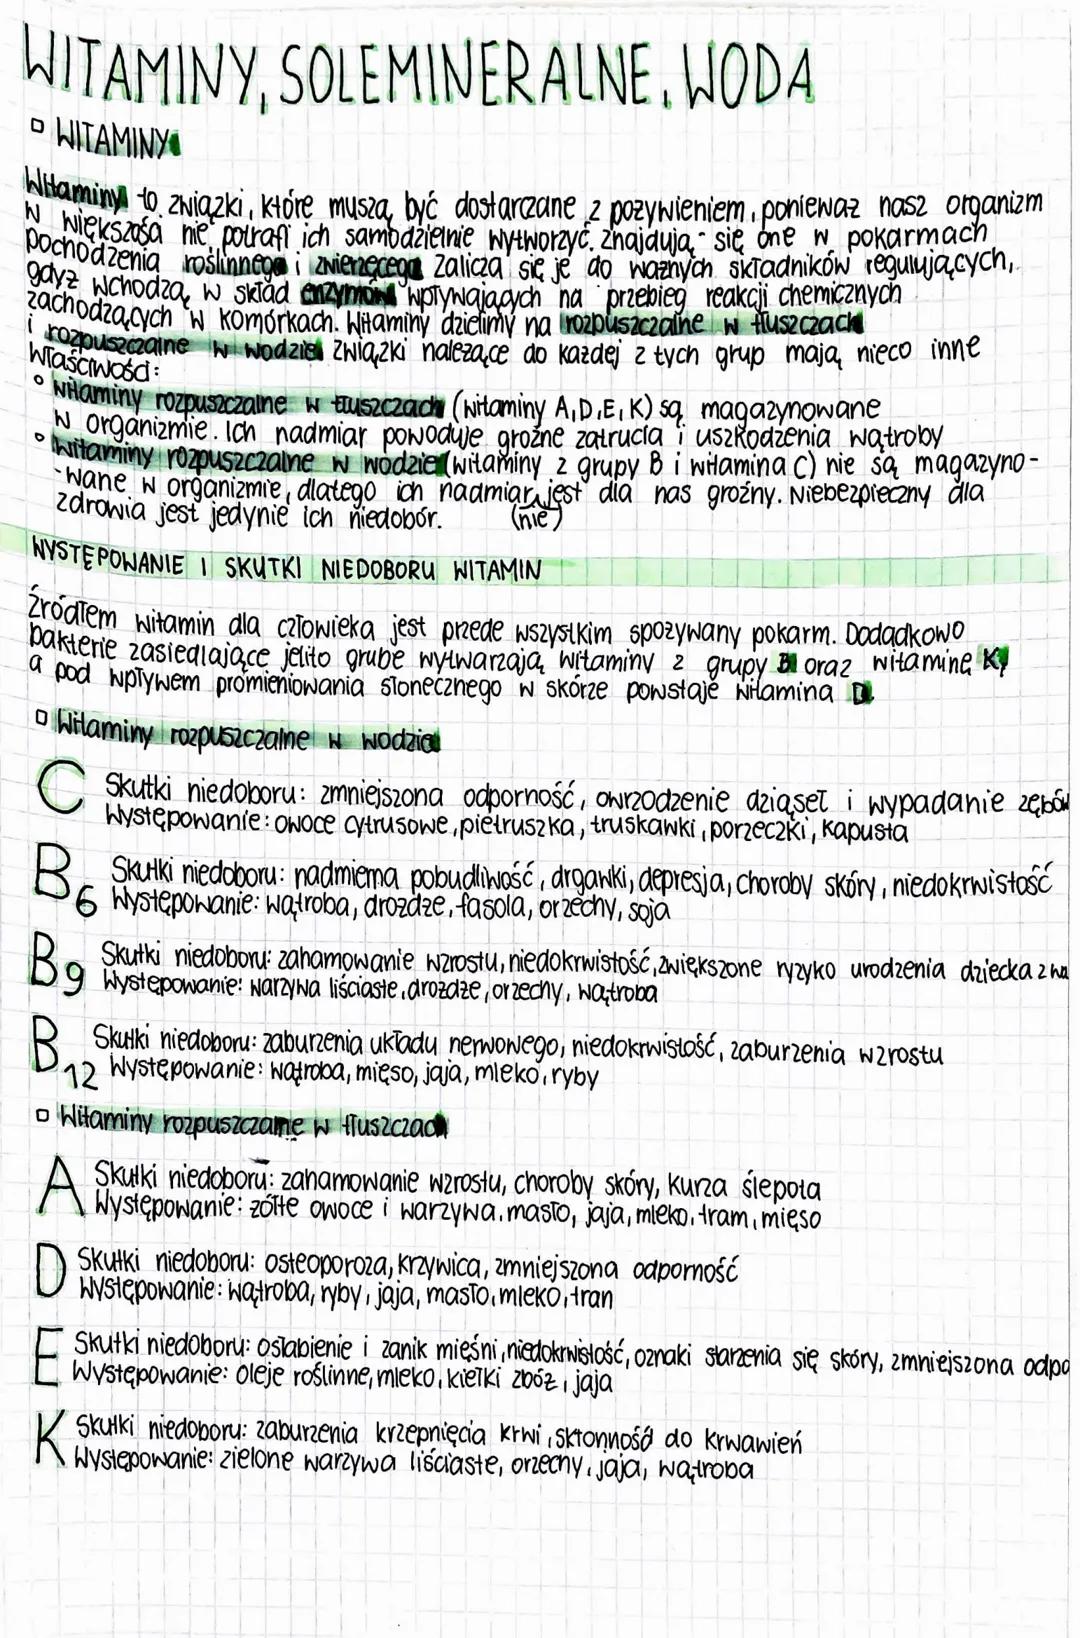 WITAMINY, SOLEMINERALNE, WODA
WITAMINY
Witaminy to związki, które muszą być dostarczane z pożywieniem, ponieważ nasz organizm
w większości nie potrafi ich samodzielnie wytworzyć. Znajdują się one w pokarmach
pochodzenia roślinnego i zwierzęcego Zalicza się je do ważnych składników regulujących,
gdyż wchodzą w skład enzymów wpływających na przebieg reakcji chemicznych
zachodzących w komórkach. Witaminy dzielimy na rozpuszczalne w tłuszczach
i rozpuszczalne w wodzie. Związki należące do każdej z tych grup mają nieco inne
właściwości:
witaminy rozpuszczalne w tłuszczach (witaminy A, D, E, K) są magazynowane
w organizmie. Ich nadmiar powoduje groźne zatrucia i uszkodzenia wątroby
witaminy rozpuszczalne w wodzie (witaminy z grupy B i witamina C) nie są magazyno-
-wane w organizmie, dlatego ich nadmiar jest dla nas groźny. Niebezpieczny dla
(nie)
zdrowia jest jedynie ich niedobór.
WYSTĘPOWANIE I SKUTKI NIEDOBORU WITAMIN
Źródłem witamin dla człowieka jest przede wszystkim spożywany pokarm. Dodadkowo
bakterie zasiedlające jelito grube wytwarzają witaminy z grupy B oraz witaminę K,
a pod wpływem promieniowania słonecznego w skórze powstaje witamina D.
Witaminy rozpuszczalne w wodzie
C Skutki niedoboru: zmniejszona odporność, owrzodzenie dziąseł i wypadanie zębów
Występowanie: owoce cytrusowe, pietruszka, truskawki, porzeczki, kapusta
B6 Skutki niedoboru: nadmierna pobudliwość, drgawki, depresja, choroby skóry, niedokrwistość
Występowanie: wątroba, drożdże, fasola, orzechy, soja
B9 Skutki niedoboru: zahamowanie wzrostu, niedokrwistość, zwiększone ryzyko urodzenia dziecka z wa
Występowanie: warzywa liściaste, drożdże, orzechy, wątroba
B12 Skutki niedoboru: zaburzenia układu nerwowego, niedokrwistość, zaburzenia wzrostu
Występowanie: wątroba, mięso, jaja, mleko, ryby
Witaminy rozpuszczalne w tłuszczach
A Skutki niedoboru: zahamowanie wzrostu, choroby skóry, kurza ślepota
Występowanie: żółte owoce i warzywa, masło, jaja, mleko, tram, mięso
D Skutki niedoboru: osteoporoza, krzywica, zmniejszona odporność
Występowanie: wątroba, ryby, jaja, masło, mleko, tran
E Skutki niedoboru: osłabienie i zanik mięśni, niedokrwistość, oznaki starzenia się skóry, zmniejszona odpo
Występowanie: oleje roślinne, mleko, kiełki zbóż, jaja
K Skutki niedoboru: zaburzenia krzepnięcia krwi, skłonność do krwawień
Występowanie: zielone warzywa liściaste, orzechy, jaja, wątroba